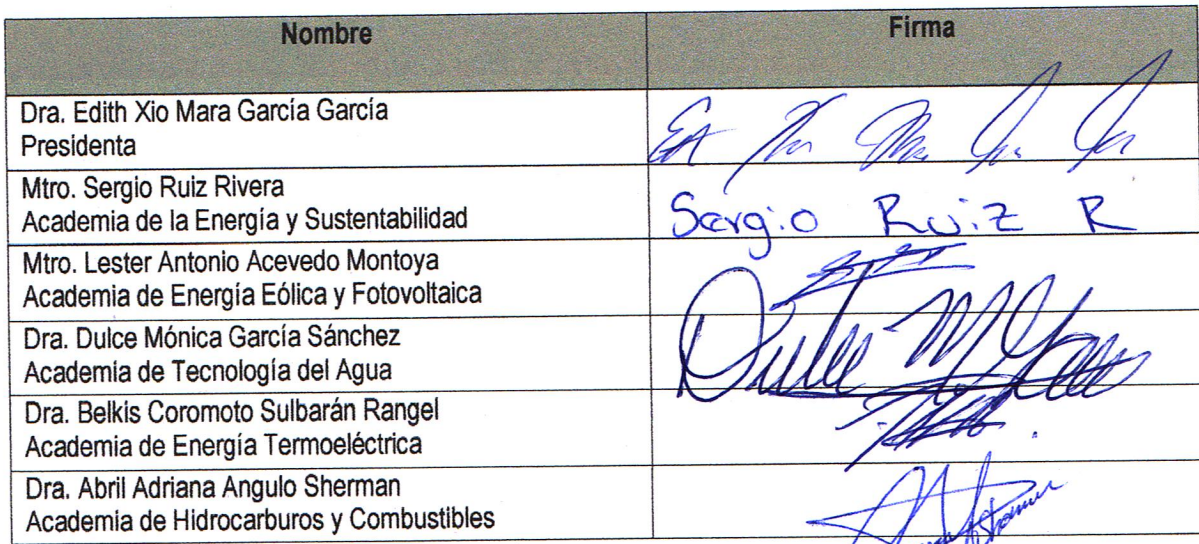 Nombre Firma
Dra. Edith Xio Mara García García
Presidenta
Mtro. Sergio Ruiz Rivera
Academia de la Energía y Sustentabilidad
Sergio Ruiz R
Mtro. Lester Antonio Acevedo Montoya
Academia de Energía Eólica y Fotovoltaica
Dra. Dulce Mónica García Sánchez
Academia de Tecnología del Agua
Dulce M
Dra. Belkis Coromoto Sulbarán Rangel
Academia de Energía Termoeléctrica
Dra. Abril Adriana Angulo Sherman
Academia de Hidrocarburos y Combustibles